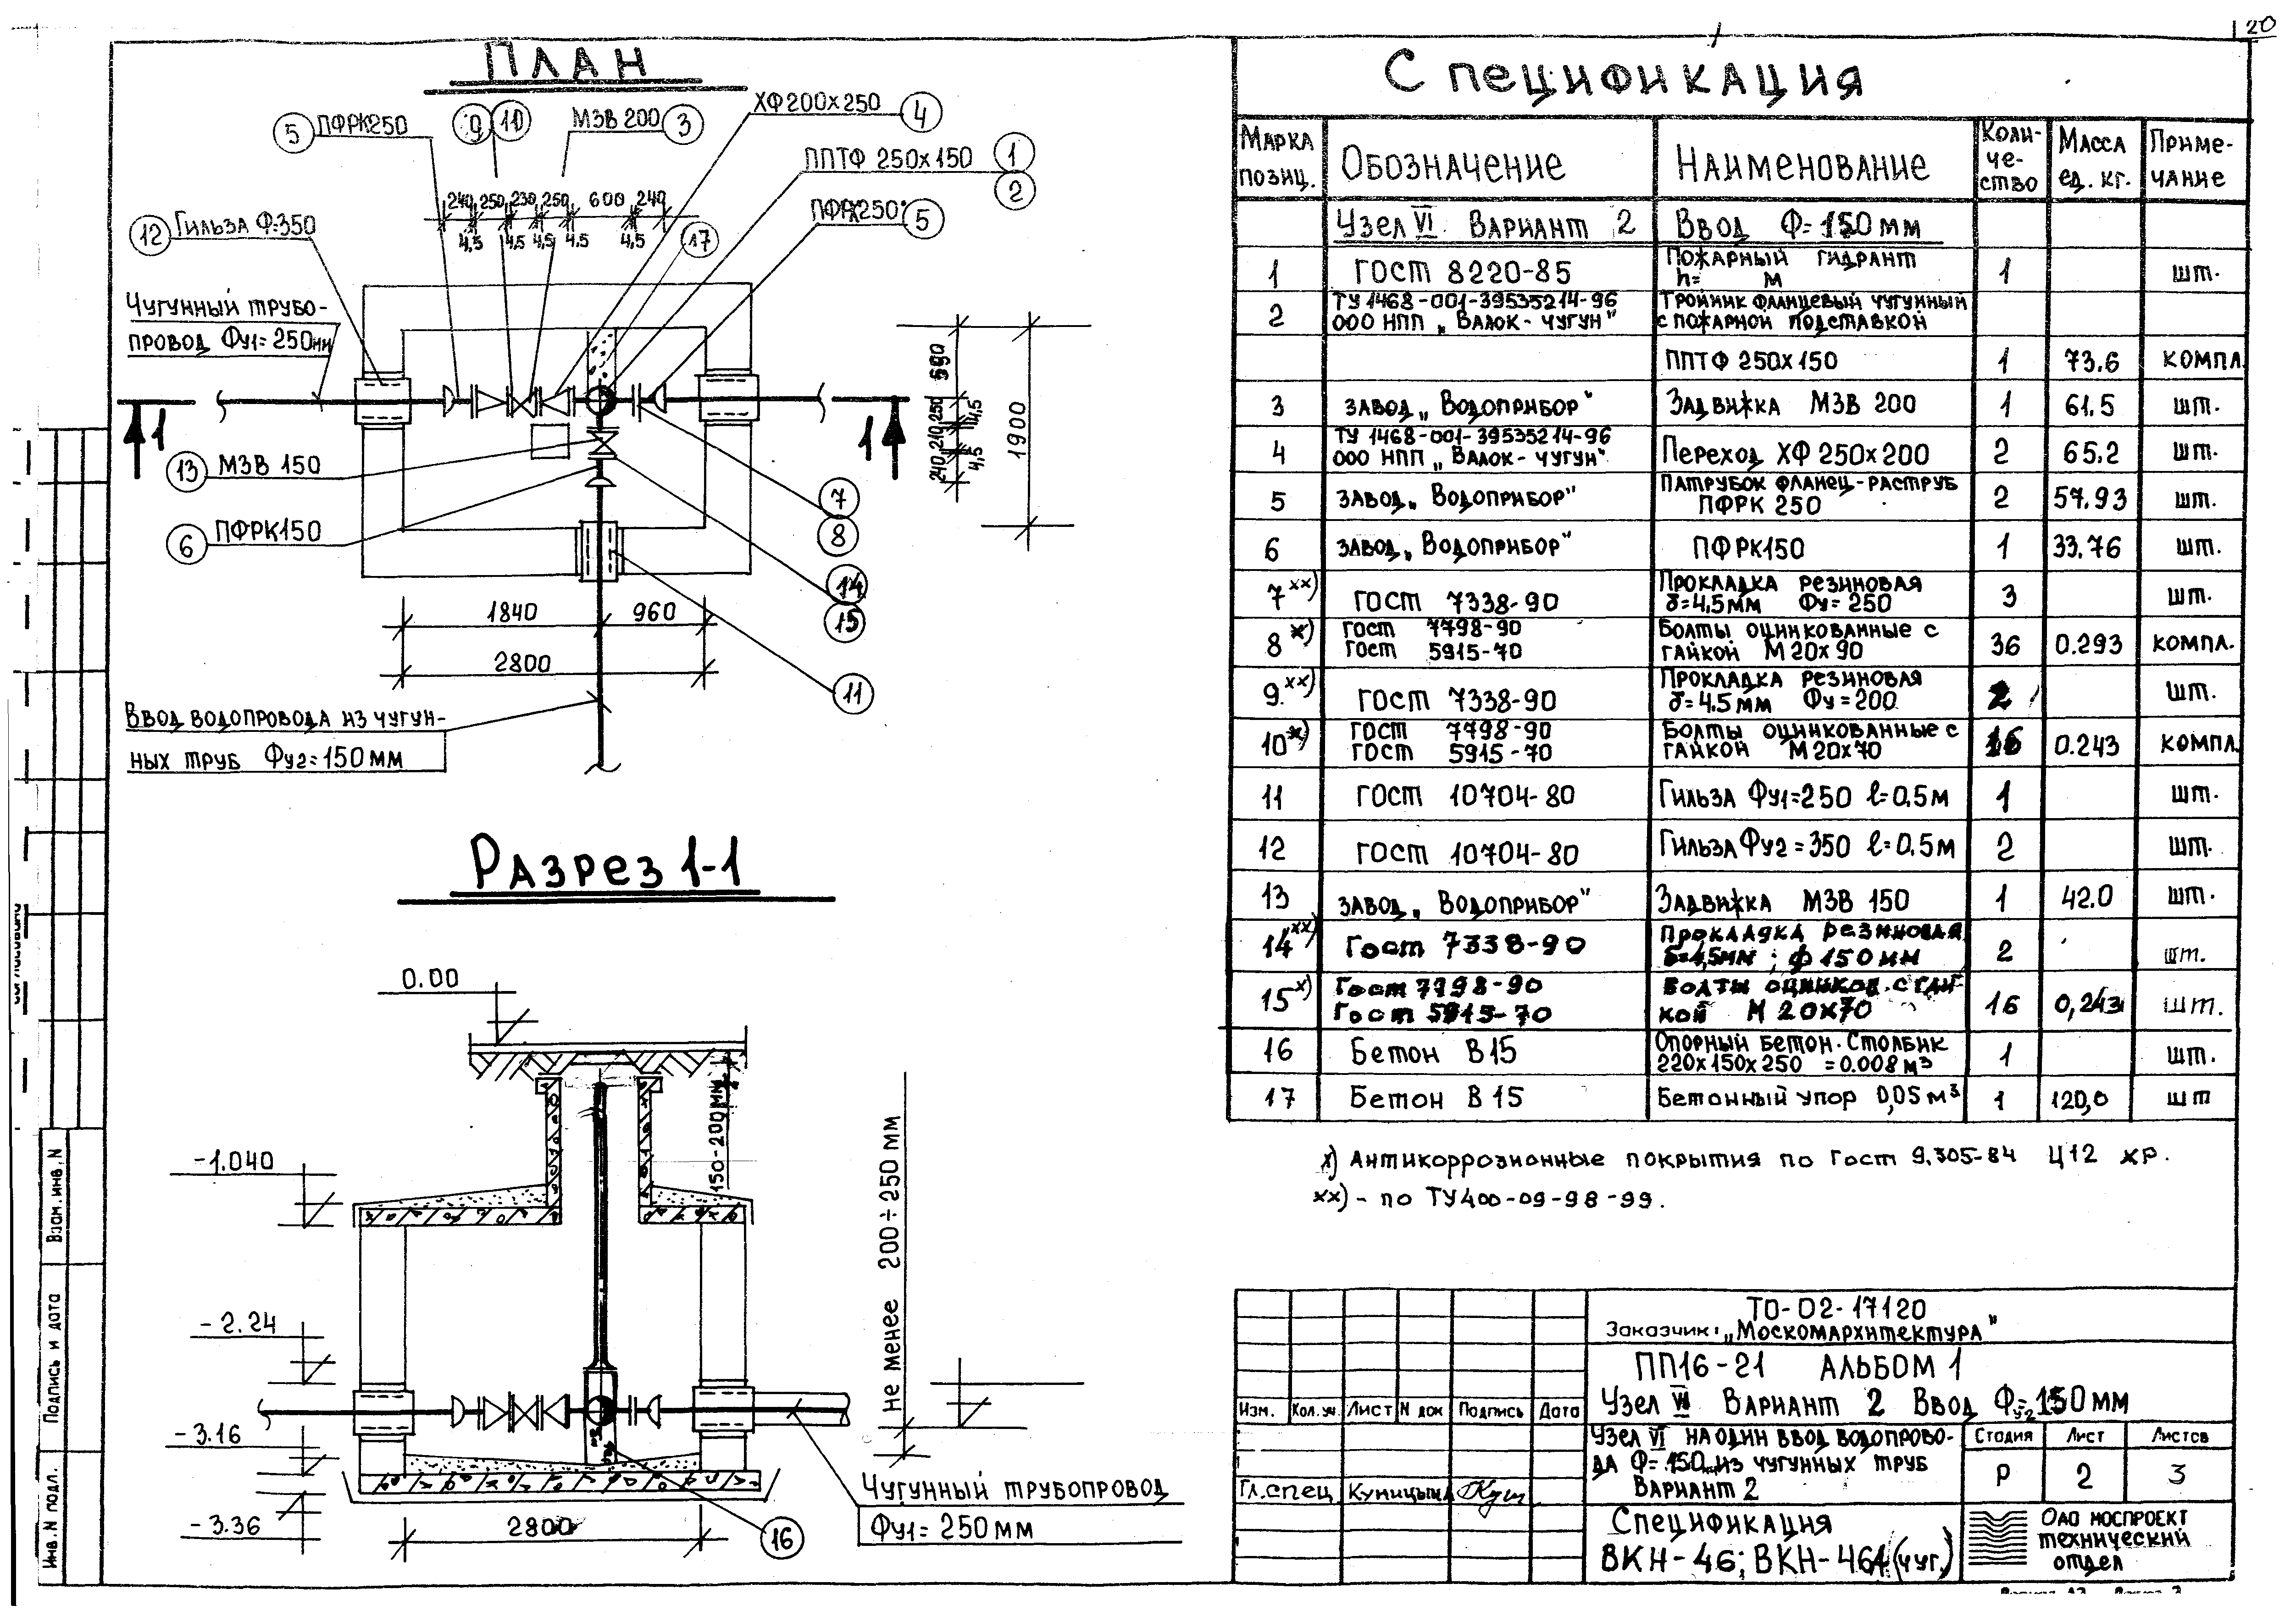 20
План
5 ПФРК250
9 10
МЗВ 200 3
ХФ 200х250 4
ППТФ 250х150 1
2
ПФРК250 5
17
12 Гильза Ф=350
240 250 230 250 600 240
4,5 4,5 4,5 4,5 4,5
Чугунный трубо-
провод Фу1=250мм
1 1
13 МЗВ 150
6 ПФРК150
7
8
14
15
11
690
250 4,5
210
240 4,5
1900
1840 960
2800
Ввод водопровода из чугун-
ных труб Фу2=150мм
Разрез 1-1
0.00
-1.040
-2.24
-3.16
-3.36
150-200мм
не менее 200÷250 мм
2800
16
Чугунный трубопровод
Фу1=250мм
Спецификация
Марка позиц. Обозначение Наименование Коли-че-ство Масса ед. кг. Приме-чание
Узел VI Вариант 2 Ввод Ф=150мм
1 ГОСТ 8220-85 Пожарный гидрант h= м 1 шт.
2 ТУ 1468-001-39535214-96 Тройник фланцевый чугунный
ООО НПП „Валок-чугун" с пожарной подставкой
ППТФ 250х150 1 73.6 компл.
3 завод „Водоприбор" Задвижка МЗВ 200 1 61.5 шт.
4 ТУ 1468-001-39535214-96
ООО НПП „Валок-чугун" Переход ХФ 250х200 2 65.2 шт.
5 завод „Водоприбор" Патрубок фланец-раструб ПФРК 250 2 57.93 шт.
6 завод „Водоприбор" ПФРК150 1 33.76 шт.
7хх) ГОСТ 7338-90 Прокладка резиновая δ=4,5мм Фу=250 3 шт.
8х) ГОСТ 7798-90 Болты оцинкованные с
ГОСТ 5915-70 гайкой М20х90 36 0.293 компл.
9хх) ГОСТ 7338-90 Прокладка резиновая δ=4.5мм Фу=200 2 шт.
10х) ГОСТ 7798-90 Болты оцинкованные с
ГОСТ 5915-70 гайкой М20х70 16 0.243 компл.
11 ГОСТ 10704-80 Гильза Фу1=250 l=0,5м 1 шт.
12 ГОСТ 10704-80 Гильза Фу2=350 l=0.5м 2 шт.
13 завод „Водоприбор" Задвижка МЗВ 150 1 42.0 шт.
14хх) Гост 7338-90 Прокладка резиновая δ=4,5мм; ф 150мм 2 шт.
15х) Гост 7798-90 Болты оцинков. с гай-
Гост 5915-70 кой М 20х70 16 0,243 шт.
16 Бетон В15 Опорный бетон. столбик
220х150х250 =0.008м³ 1 шт.
17 Бетон В15 Бетонный упор 0,05м³ 1 120,0 шт
х) Антикоррозионные покрытия по Гост 9.305-84 Ц12 хр.
хх) - по ТУ400-09-98-99.
ТО-02-17120
Заказчик: „Москомархитектура"
ПП16-21 Альбом 1
Узел VI Вариант 2 Ввод Фу2=150мм
Изм. Кол.уч. Лист N док Подпись Дата
Узел VI на один ввод водопрово-
да Ф=150 из чугунных труб
Вариант 2
Стадия Лист Листов
Р 2 3
Гл.спец. Куницына
Спецификация
ВКН-46; ВКН-46А (чуг.)
ОАО Моспроект
технический
отдел
Взам.инв.N
Подпись и дата
Инв.N подл.